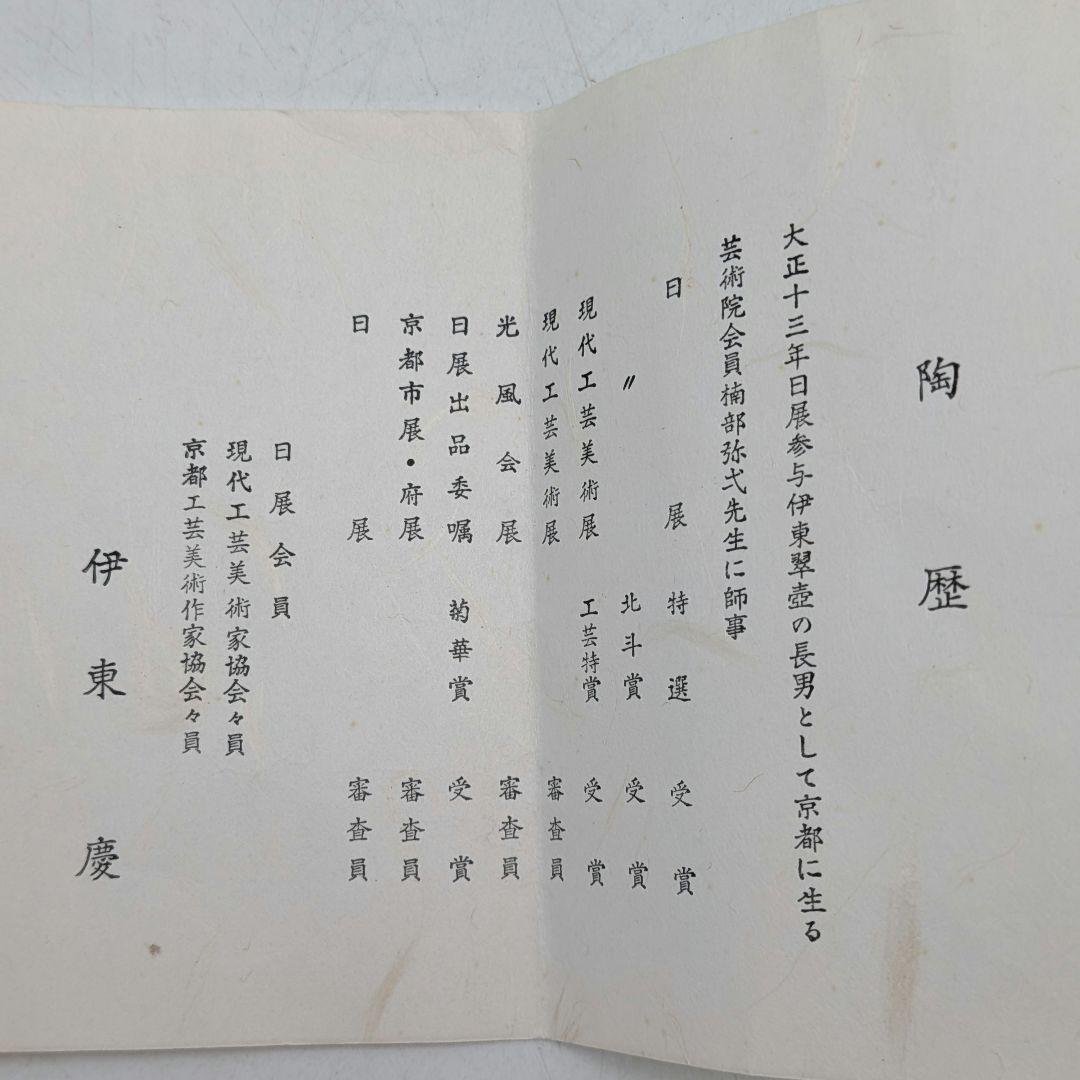 陶歴
大正十三年日展参与伊東翠壺の長男として京都に生る
芸術院会員楠部弥弌先生に師事
日展 特選 受賞
〃 北斗賞 受賞
現代工芸美術展 工芸特賞 受賞
現代工芸美術展 審査員
光風会展 審査員
日展出品委嘱 菊華賞 受賞
京都市展・府展 審査員
日展 審査員
日展会員
現代工芸美術家協会々員
京都工芸美術作家協会々員
伊東慶